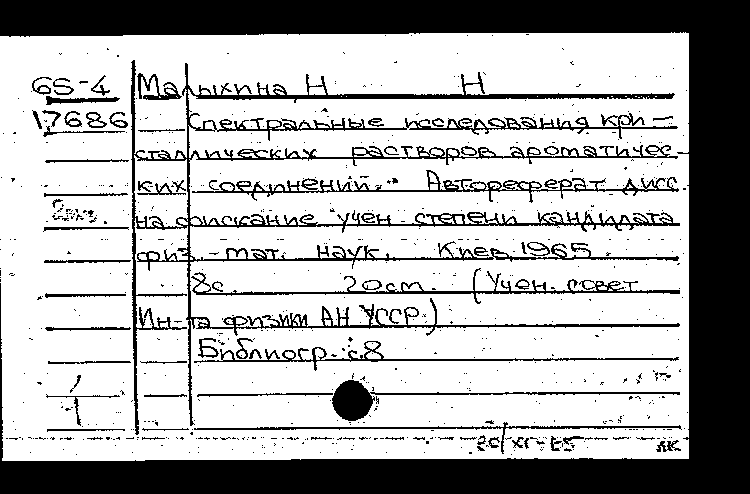 65-4 Малыхина Н Н
17686 Спектральные исследования кри-
сталлических растворов ароматичес-
ких соединений. Автореферат дисс.
2экз. на соискание учен степени кандидата
физ-мат. наук. Киев, 1965.
8с. 20см. (Учен. совет
Ин-та физики АН УССР.)
Библиогр. с.8